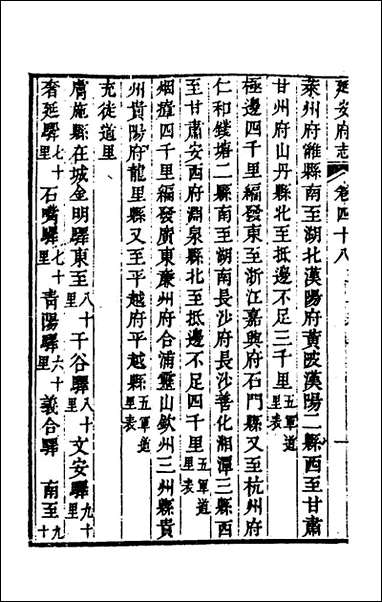 延安府志　卷四十八
萊州府濰縣南至湖北漢陽府黃陂漢陽二縣西至甘肅
甘州府山丹縣北至抵邊不足三千里五軍道里表
極邊四千里編發東至浙江嘉興府石門縣又至杭州府
仁和錢塘二縣南至湖南長沙府長沙善化湘潭三縣西
至甘肅安西府淵泉縣北至抵邊不足四千里五軍道里表
烟瘴四千里編發廣東廉州府合浦靈山欽州三州縣貴
州貴陽府龍里縣又至平越府平越縣五軍道里表
充徒道里
膚施縣在城金明驛東至八十里干谷驛八十里文安驛九十里
奢延驛七十里石嘴驛七十里青陽驛六十里義合驛　南至九十